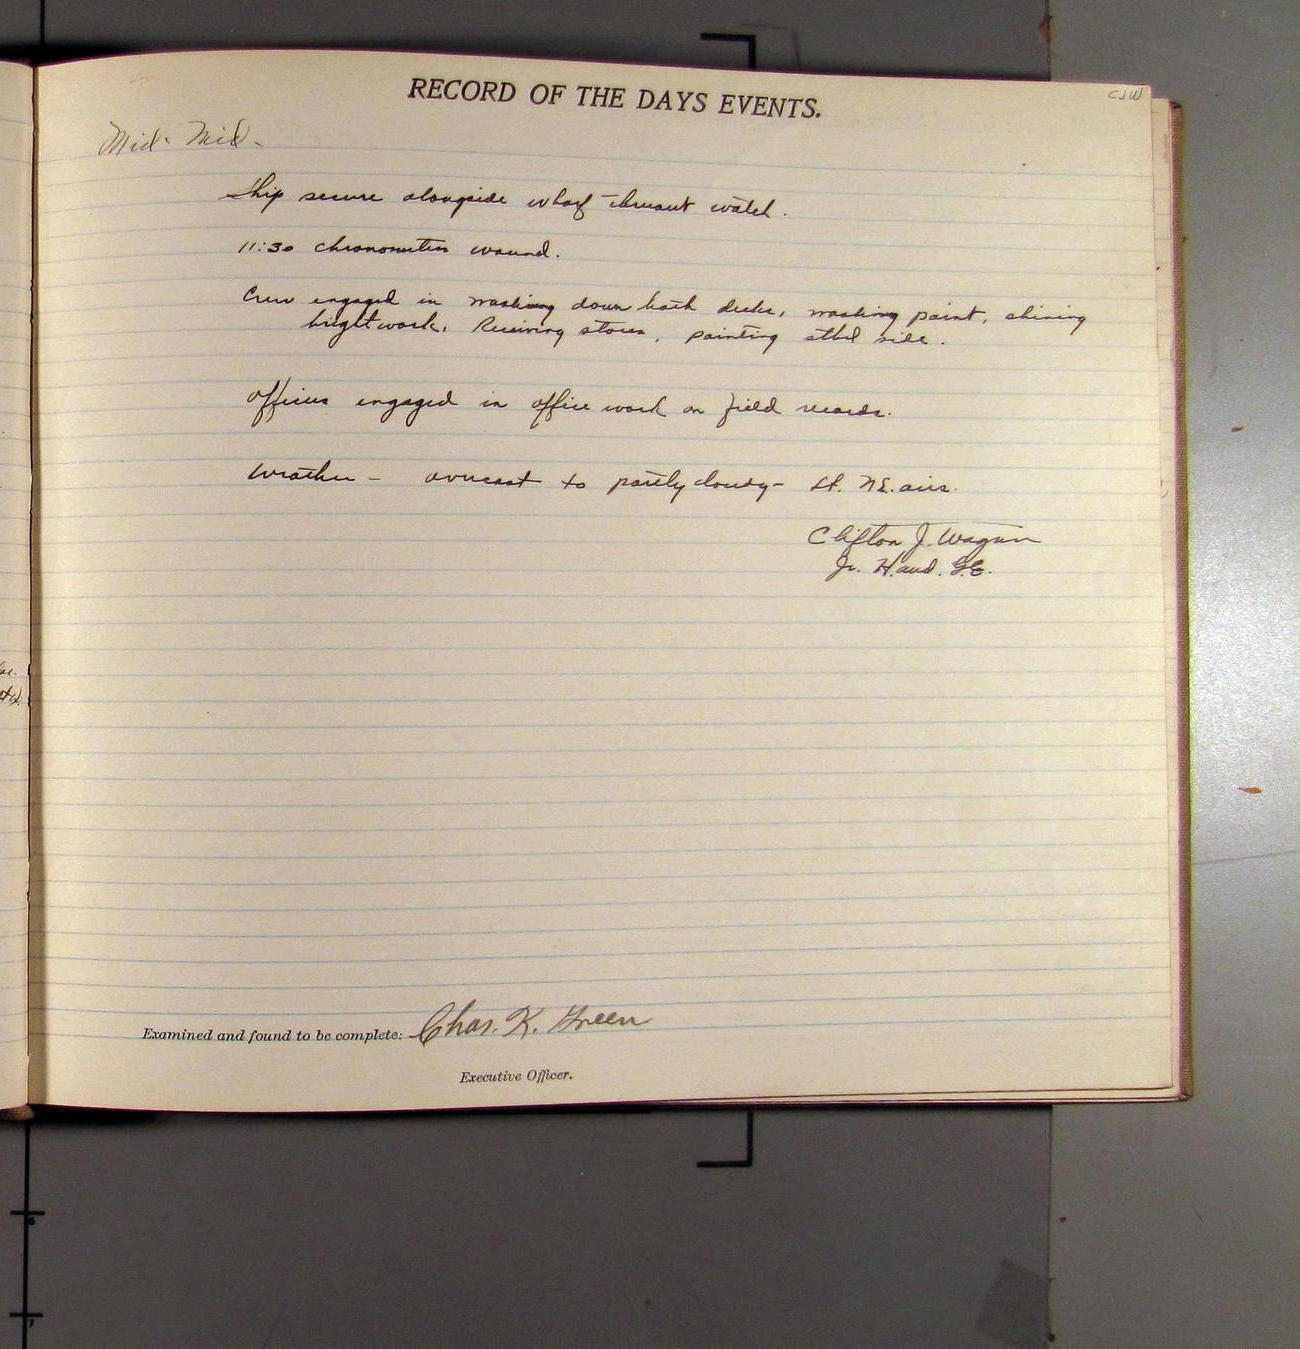 CJW
RECORD OF THE DAYS EVENTS.
Mid - Mid -
Ship secure alongside wharf watch.
11:30 Chronometers wound.
Crew engaged in washing down both decks, washing paint, shining
brightwork, Receiving stores, painting stbd side.
Officers engaged in office work on field records.
Weather - overcast to partly cloudy - Lt. NE. airs.
Clifton J. Wagner
Jr. H. and G.E.
Examined and found to be complete: Chas. K. Green
Executive Officer.
6
7